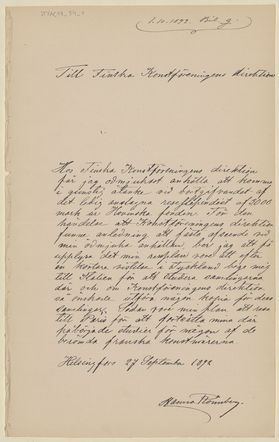 1.10.1892. Bil. g.
Till Finska Konstföreningens direktion
Hos Finska Konstföreningens direktion
får jag ödmjukast anhålla att komma
i gunstig åtanke vid bortgifvandet af
det ledig anslagna resestipendiet af 3000
mark ur Hovinska fonden. För den
händelse att Konstföreningens direktion
funne anledning att fästa afseende vid
min ödmjuka anhållan, bör jag att få
upplysa det min resplan vore att efter
en kortare vistelse i Tyskland bege mig
till Italien för att studera samlingarna
där och om Konstföreningens direktion
så önskade utföra någon kopia för dess
samlingar. Sedan vore min plan att resa
till Paris för att fortsätta mina där
påbörjade studier för någon af de
berömda franska konstnärerna
Helsingfors 27 September 1892
Hanna Rönnberg.